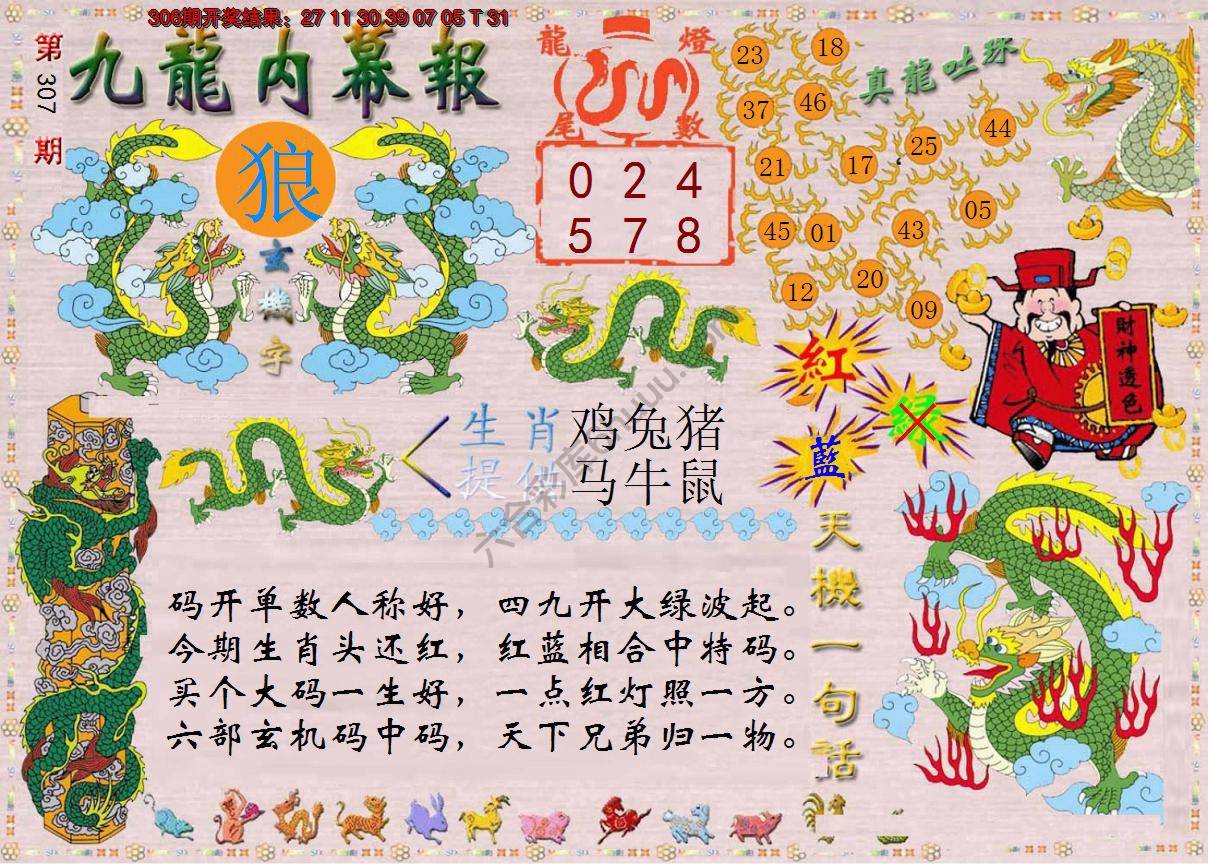 306期开奖结果：27 11 30 39 07 05 T 31
第
307
期
九龍内幕報
狼
玄
機
字
龍 燈
尾 數
0 2 4
5 7 8
真龍吐珠
23 18
37 46
21 17 25 44
45 01 43 05
12 20 09
財神透色
紅
绿
藍
生肖 鸡兔猪
提供 马牛鼠
天機一句話
码开单数人称好，四九开大绿波起。
今期生肖头还红，红蓝相合中特码。
买个大码一生好，一点红灯照一方。
六部玄机码中码，天下兄弟归一物。